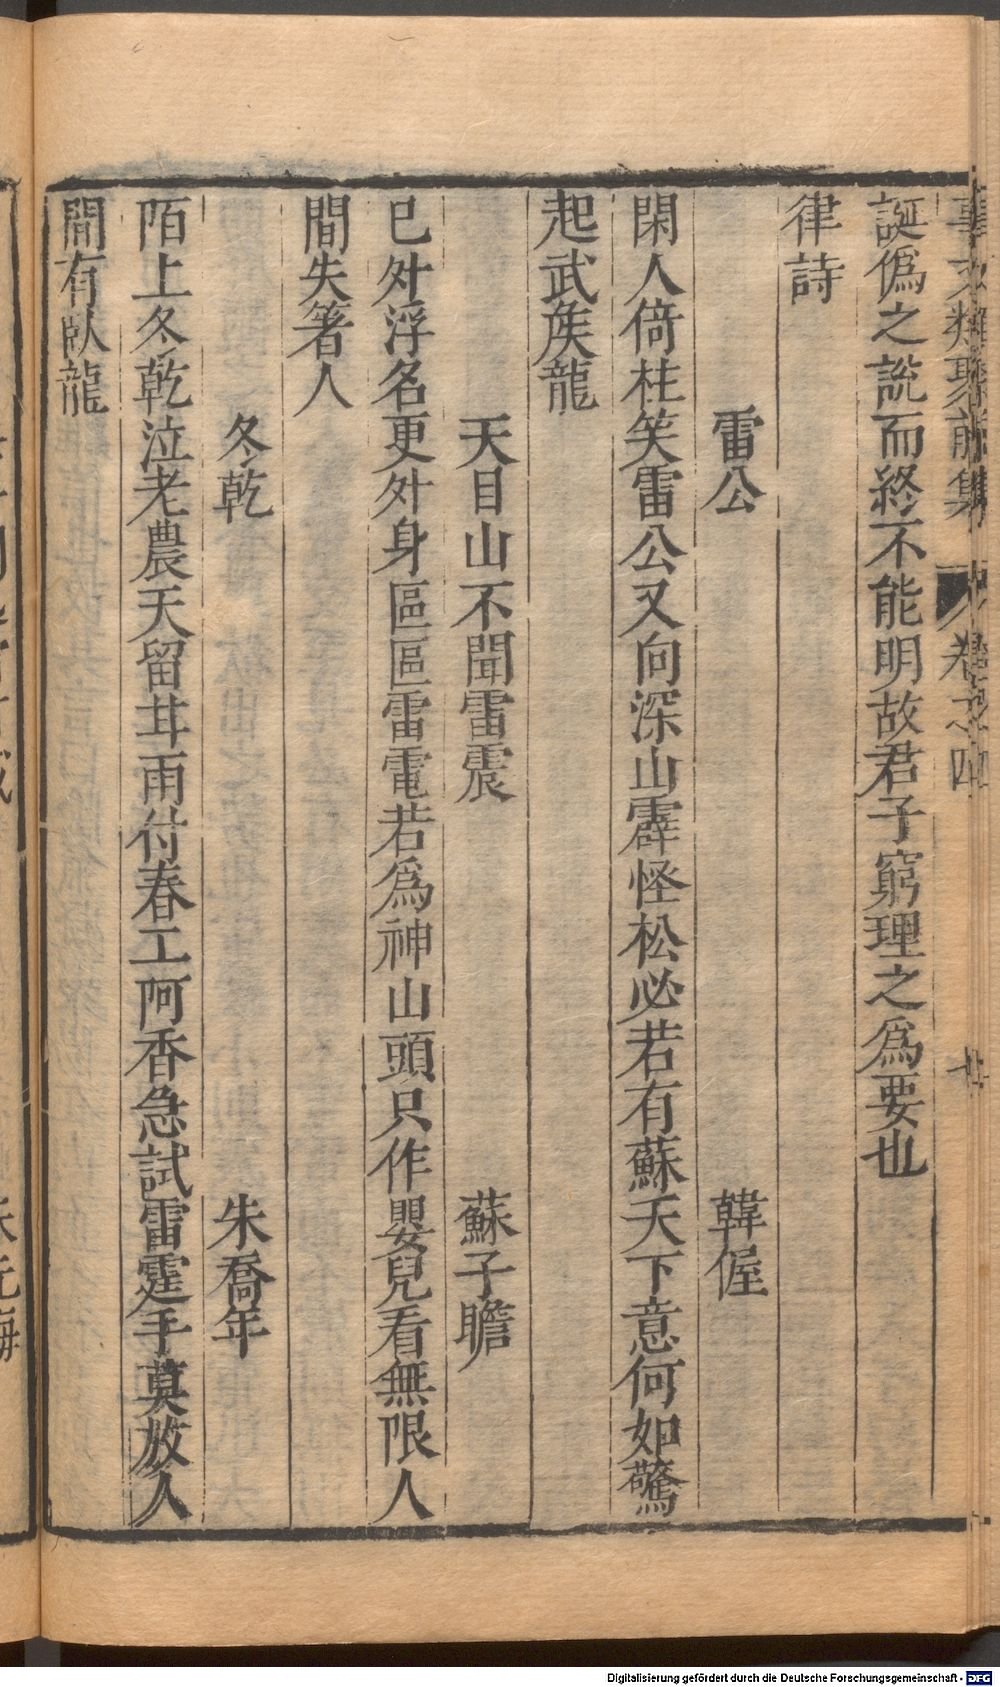 事文類聚前集 卷之四 廿
誕僞之說而終不能明故君子窮理之爲要也
律詩
雷公 韓偓
閑人倚柱笑雷公又向深山霹怪松必若有蘇天下意何如驚
起武矦龍
天目山不聞雷震 蘇子瞻
已外浮名更外身區區雷電若爲神山頭只作嬰兒看無限人
間失箸人
冬乾 朱喬年
陌上冬乾泣老農天留甘雨付春工阿香急試雷霆手莫放人
間有臥龍
Digitalisierung gefördert durch die Deutsche Forschungsgemeinschaft - DFG